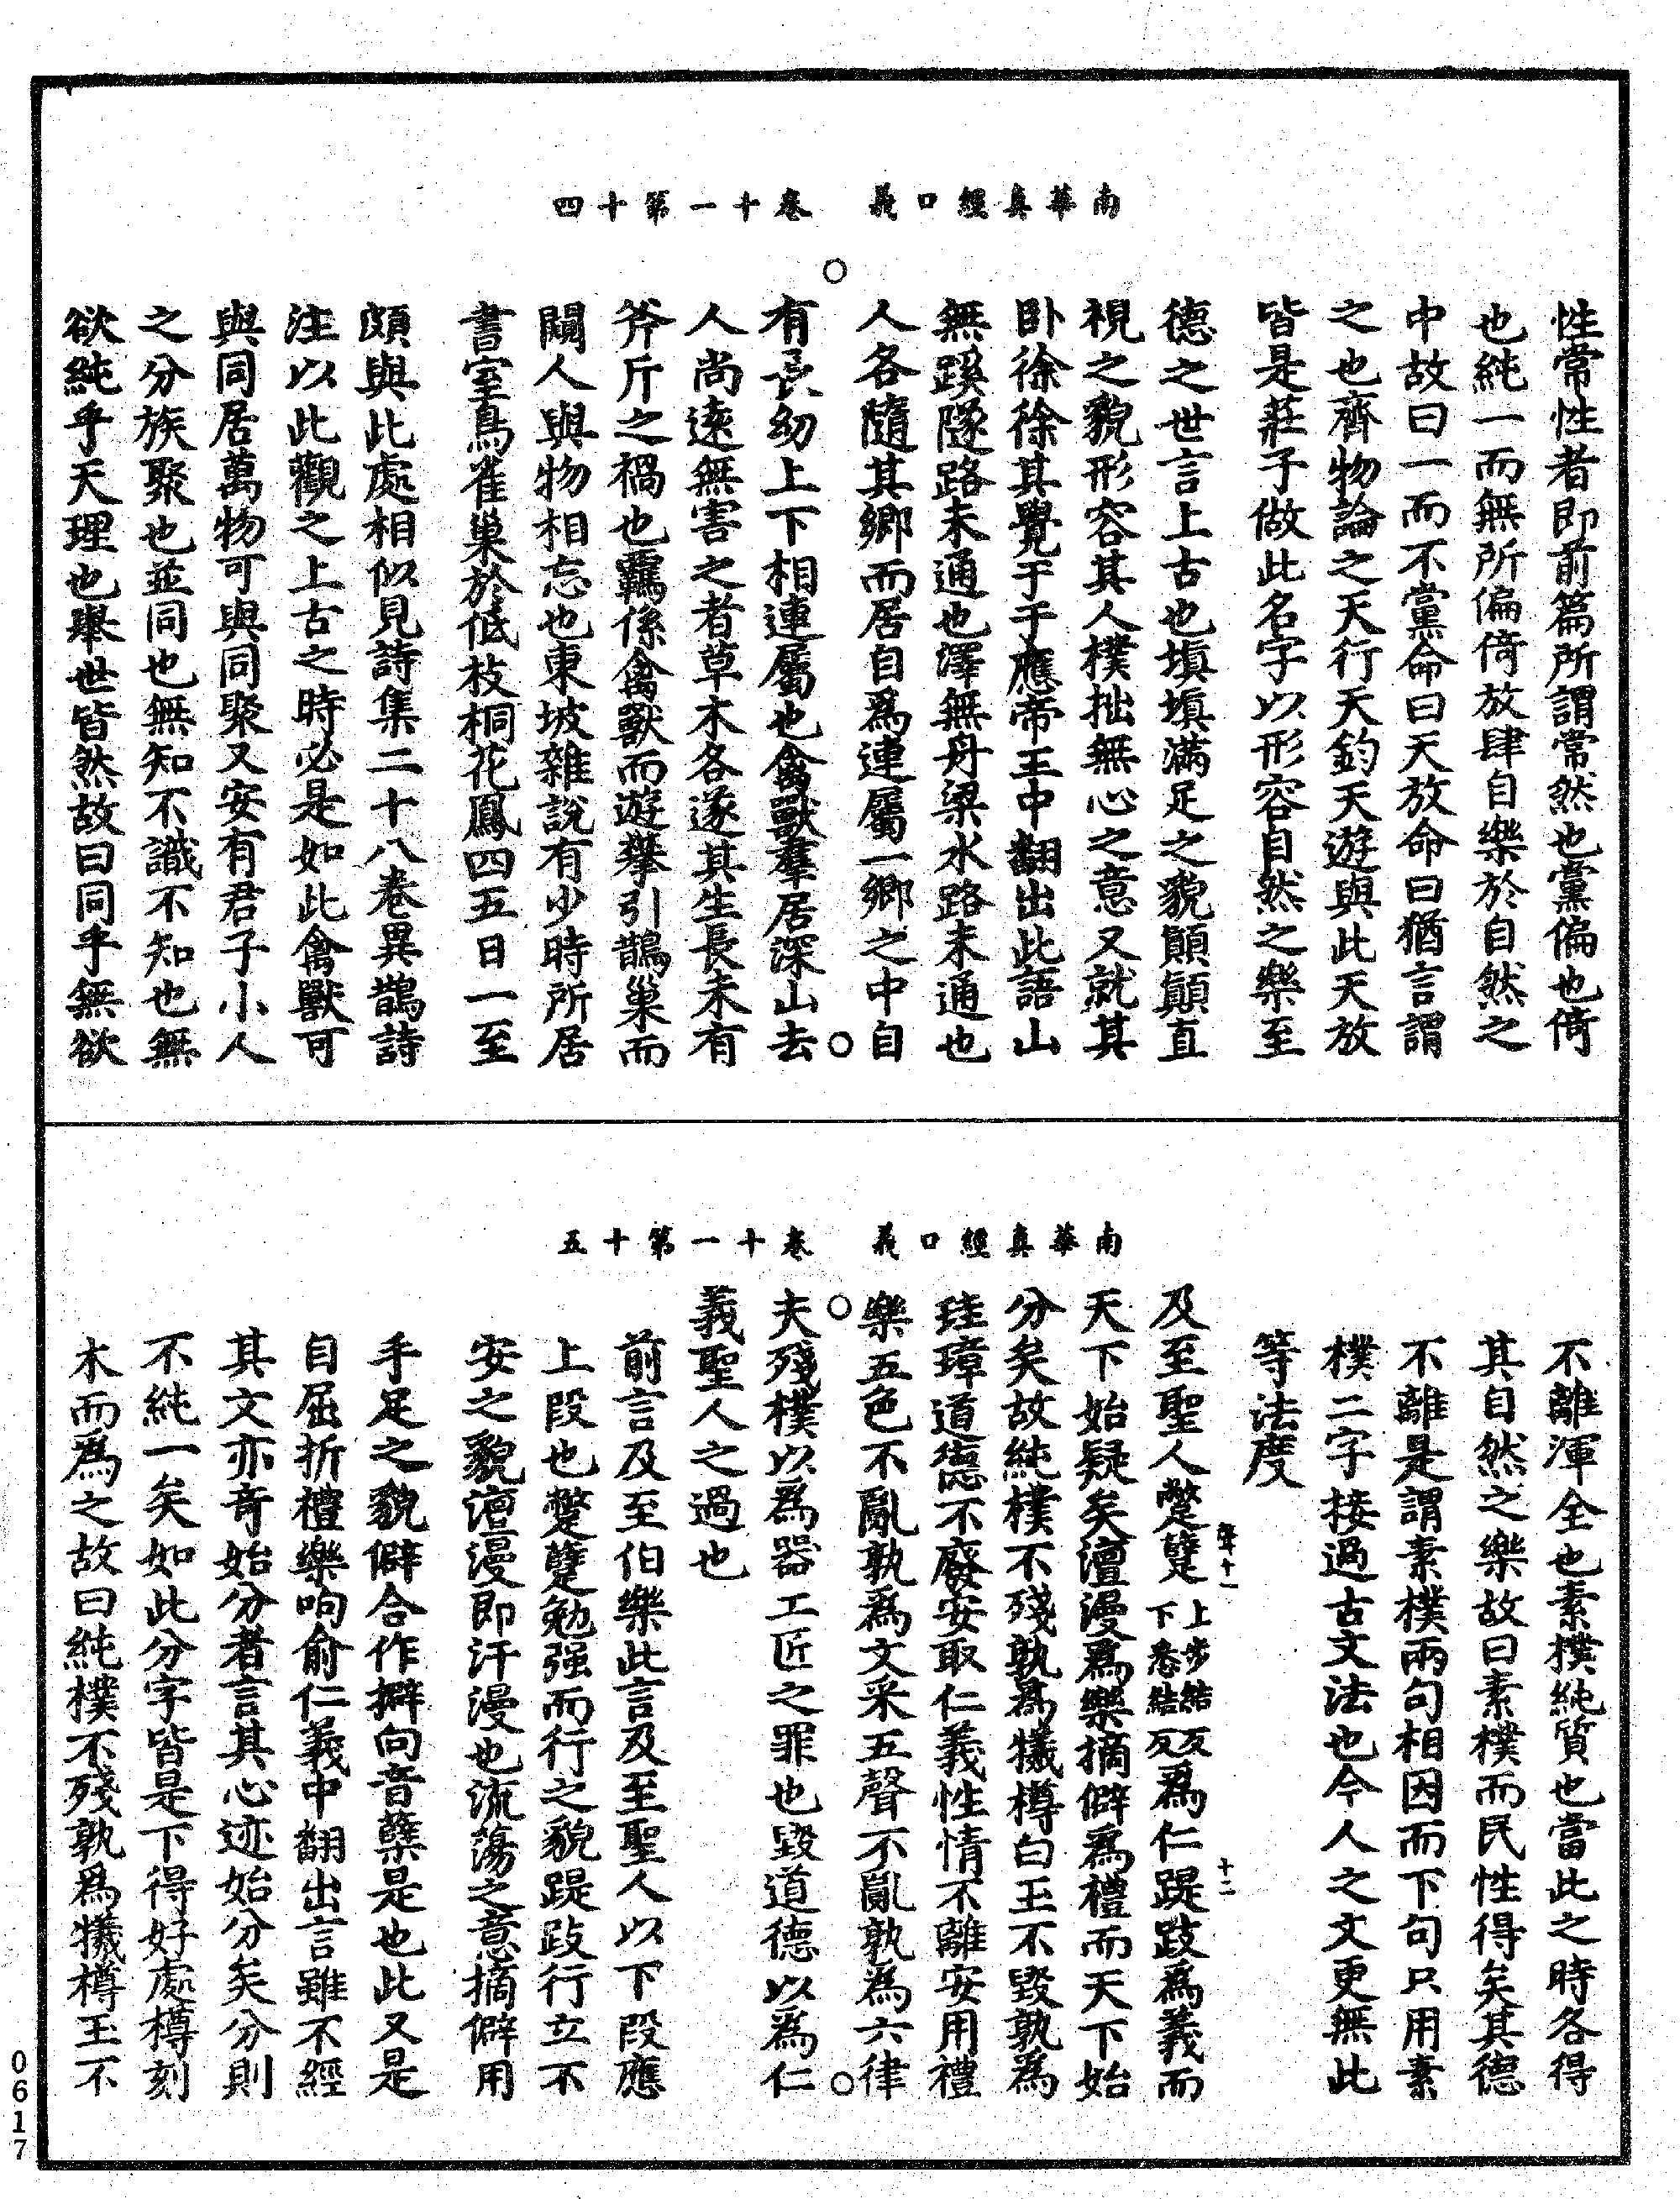 南華真經口義　卷十一第十四
性常性者即前篇所謂常然也黨偏也倚
也純一而無所偏倚放肆自樂於自然之
中故曰一而不黨命曰天放命曰猶言謂
之也齊物論之天行天鈞天遊與此天放
皆是莊子做此名字以形容自然之樂至
德之世言上古也塡塡滿足之貌顚顚直
視之貌形容其人樸拙無心之意又就其
卧徐徐其覺于于應帝王中翻出此語山
無蹊隧路未通也澤無舟梁水路未通也
人各隨其鄉而居自爲連屬一鄉之中自
有長幼上下相連屬也禽獸羣居深山去
人尚遠無害之者草木各遂其生長未有
斧斤之禍也羈係禽獸而遊攀引鵲巢而
闚人與物相忘也東坡雜說有少時所居
書室鳥雀巢於低枝桐花鳳四五日一至
頗與此處相似見詩集二十八卷異鵲詩
注以此觀之上古之時必是如此禽獸可
與同居萬物可與同聚又安有君子小人
之分族聚也並同也無知不識不知也無
欲純乎天理也舉世皆然故曰同乎無欲
南華真經口義　卷十一第十五
不離渾全也素樸純質也當此之時各得
其自然之樂故曰素樸而民性得矣其德
不離是謂素樸兩句相因而下句只用素
樸二字接過古文法也今人之文更無此
等法度
及至聖人蹩躠上步結反下悉結反爲仁踶跂爲義而
天下始疑矣澶漫爲樂摘僻爲禮而天下始
分矣故純樸不殘孰爲犧樽白玉不毀孰爲
珪璋道德不廢安取仁義性情不離安用禮
樂五色不亂孰爲文采五聲不亂孰爲六律
夫殘樸以爲器工匠之罪也毀道德以爲仁
義聖人之過也
前言及至伯樂此言及至聖人以下段應
上段也蹩躠勉强而行之貌踶跂行立不
安之貌澶漫即汗漫也流蕩之意摘僻用
手足之貌僻合作擗向音蘗是也此又是
自屈折禮樂呴俞仁義中翻出言雖不經
其文亦奇始分者言其心迹始分矣分則
不純一矣如此分字皆是下得好處樽刻
木而爲之故曰純樸不殘孰爲犧樽玉不
0617